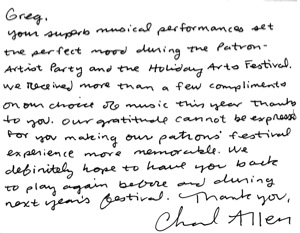 Greg,
Your superb musical performances set
the perfect mood during the Patron-
Artist Party and the Holiday Arts Festival.
We received more than a few compliments
on our choice of music this year thanks
to you. Our gratitude cannot be expressed
for you making our patrons' festival
experience more memorable. We
definitely hope to have you back
to play again before and during
next year's festival. Thank you,
Allen